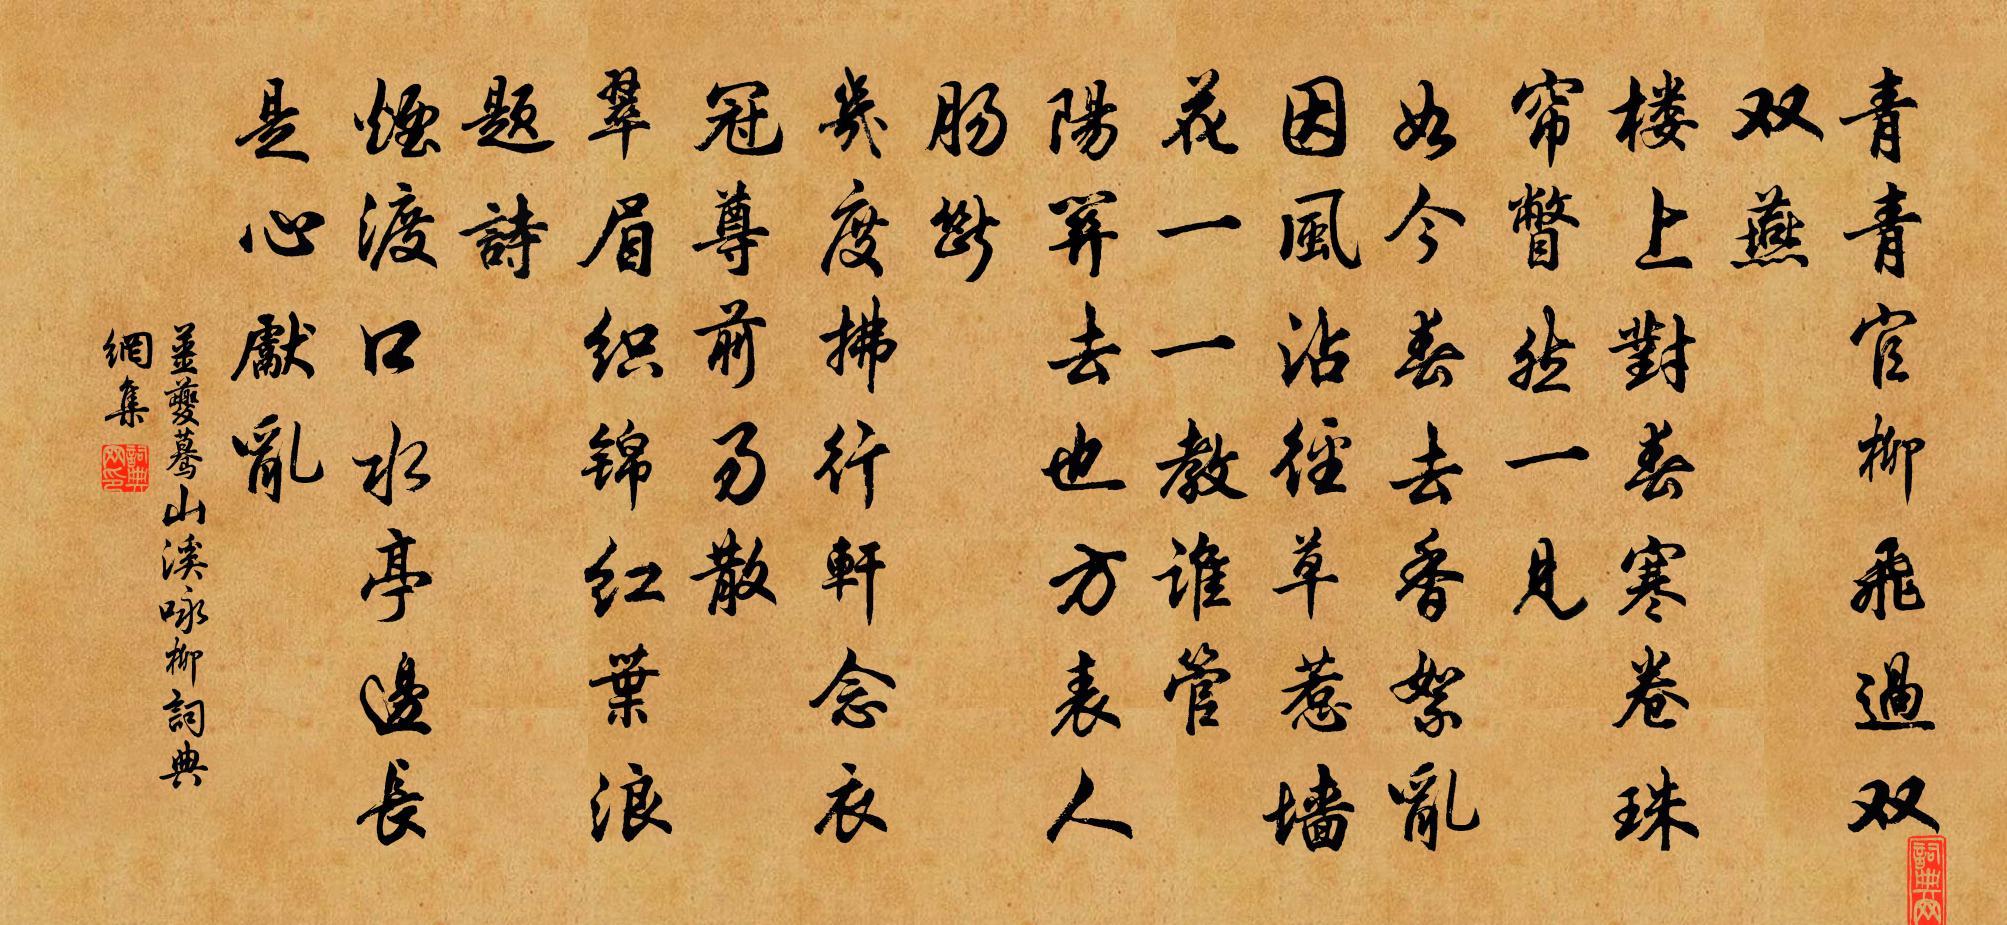 青青官柳飛過双
双燕
楼上對春寒卷珠
帘瞥然一見
如今春去香絮亂
因風沾徑草惹墙
花一一教誰管
陽关去也方表人
肠断
幾度拂行軒念衣
冠尊前易散
翠眉织锦红葉浪
题詩
煙渡口水亭邊長
是心獻亂
薑夔驀山溪咏柳詞典
網集
詞典网印
詞典网